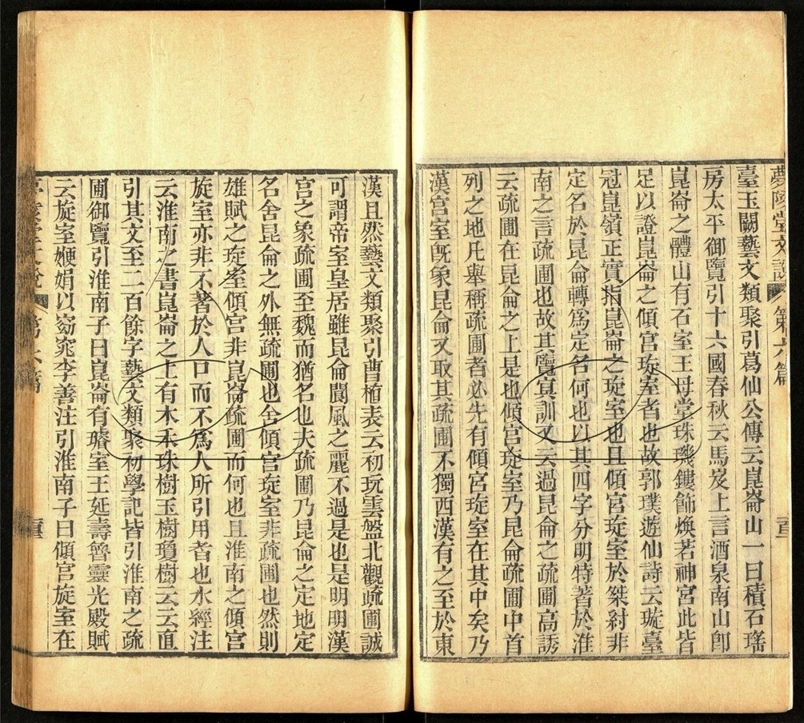 夢陔堂文說 第六篇
臺玉闕藝文類聚引葛仙公傳云崑崙山一曰積石瑤
房太平御覽引十六國春秋云馬岌上言酒泉南山卽
崑崙之體山有石室王母堂珠璣鏤飾煥若神宮此皆
足以證崑崙之傾宮琁室者也故郭璞遊仙詩云璇臺
冠崑嶺正實指崑崙之琁室也且傾宮琁室於桀紂非
定名於昆侖轉爲定名何也以其四字分明特著於淮
南之言疏圃也故其覽冥訓又云過昆侖之疏圃高誘
云疏圃在昆侖之上是也傾宮琁室乃昆侖疏圃中首
列之地凡舉稱疏圃者必先有傾宮琁室在其中矣乃
漢宮室旣象昆侖又取其疏圃不獨西漢有之至於東
漢且然藝文類聚引曹植表云初玩雲盤北觀疏圃誠
可謂帝室皇居雖昆侖閬風之麗不過是也是明明漢
宮之象疏圃至魏而猶名也夫疏圃乃昆侖之定地定
名舍昆侖之外無疏圃也舍傾宮琁室非疏圃也然則
雄賦之琁室傾宮非崑崙疏圃而何也且淮南之傾宮
旋室亦非不著於人口而不爲人所引用者也水經注
云淮南之書崑崙之上有木禾珠樹玉樹瓊樹云云直
引其文至二百餘字藝文類聚初學記皆引淮南之疏
圃御覽引淮南子曰崑崙有璿室王延壽魯靈光殿賦
云旋室㛹娟以窈窕李善注引淮南子曰傾宮旋室在
夢陔堂文說 第六篇